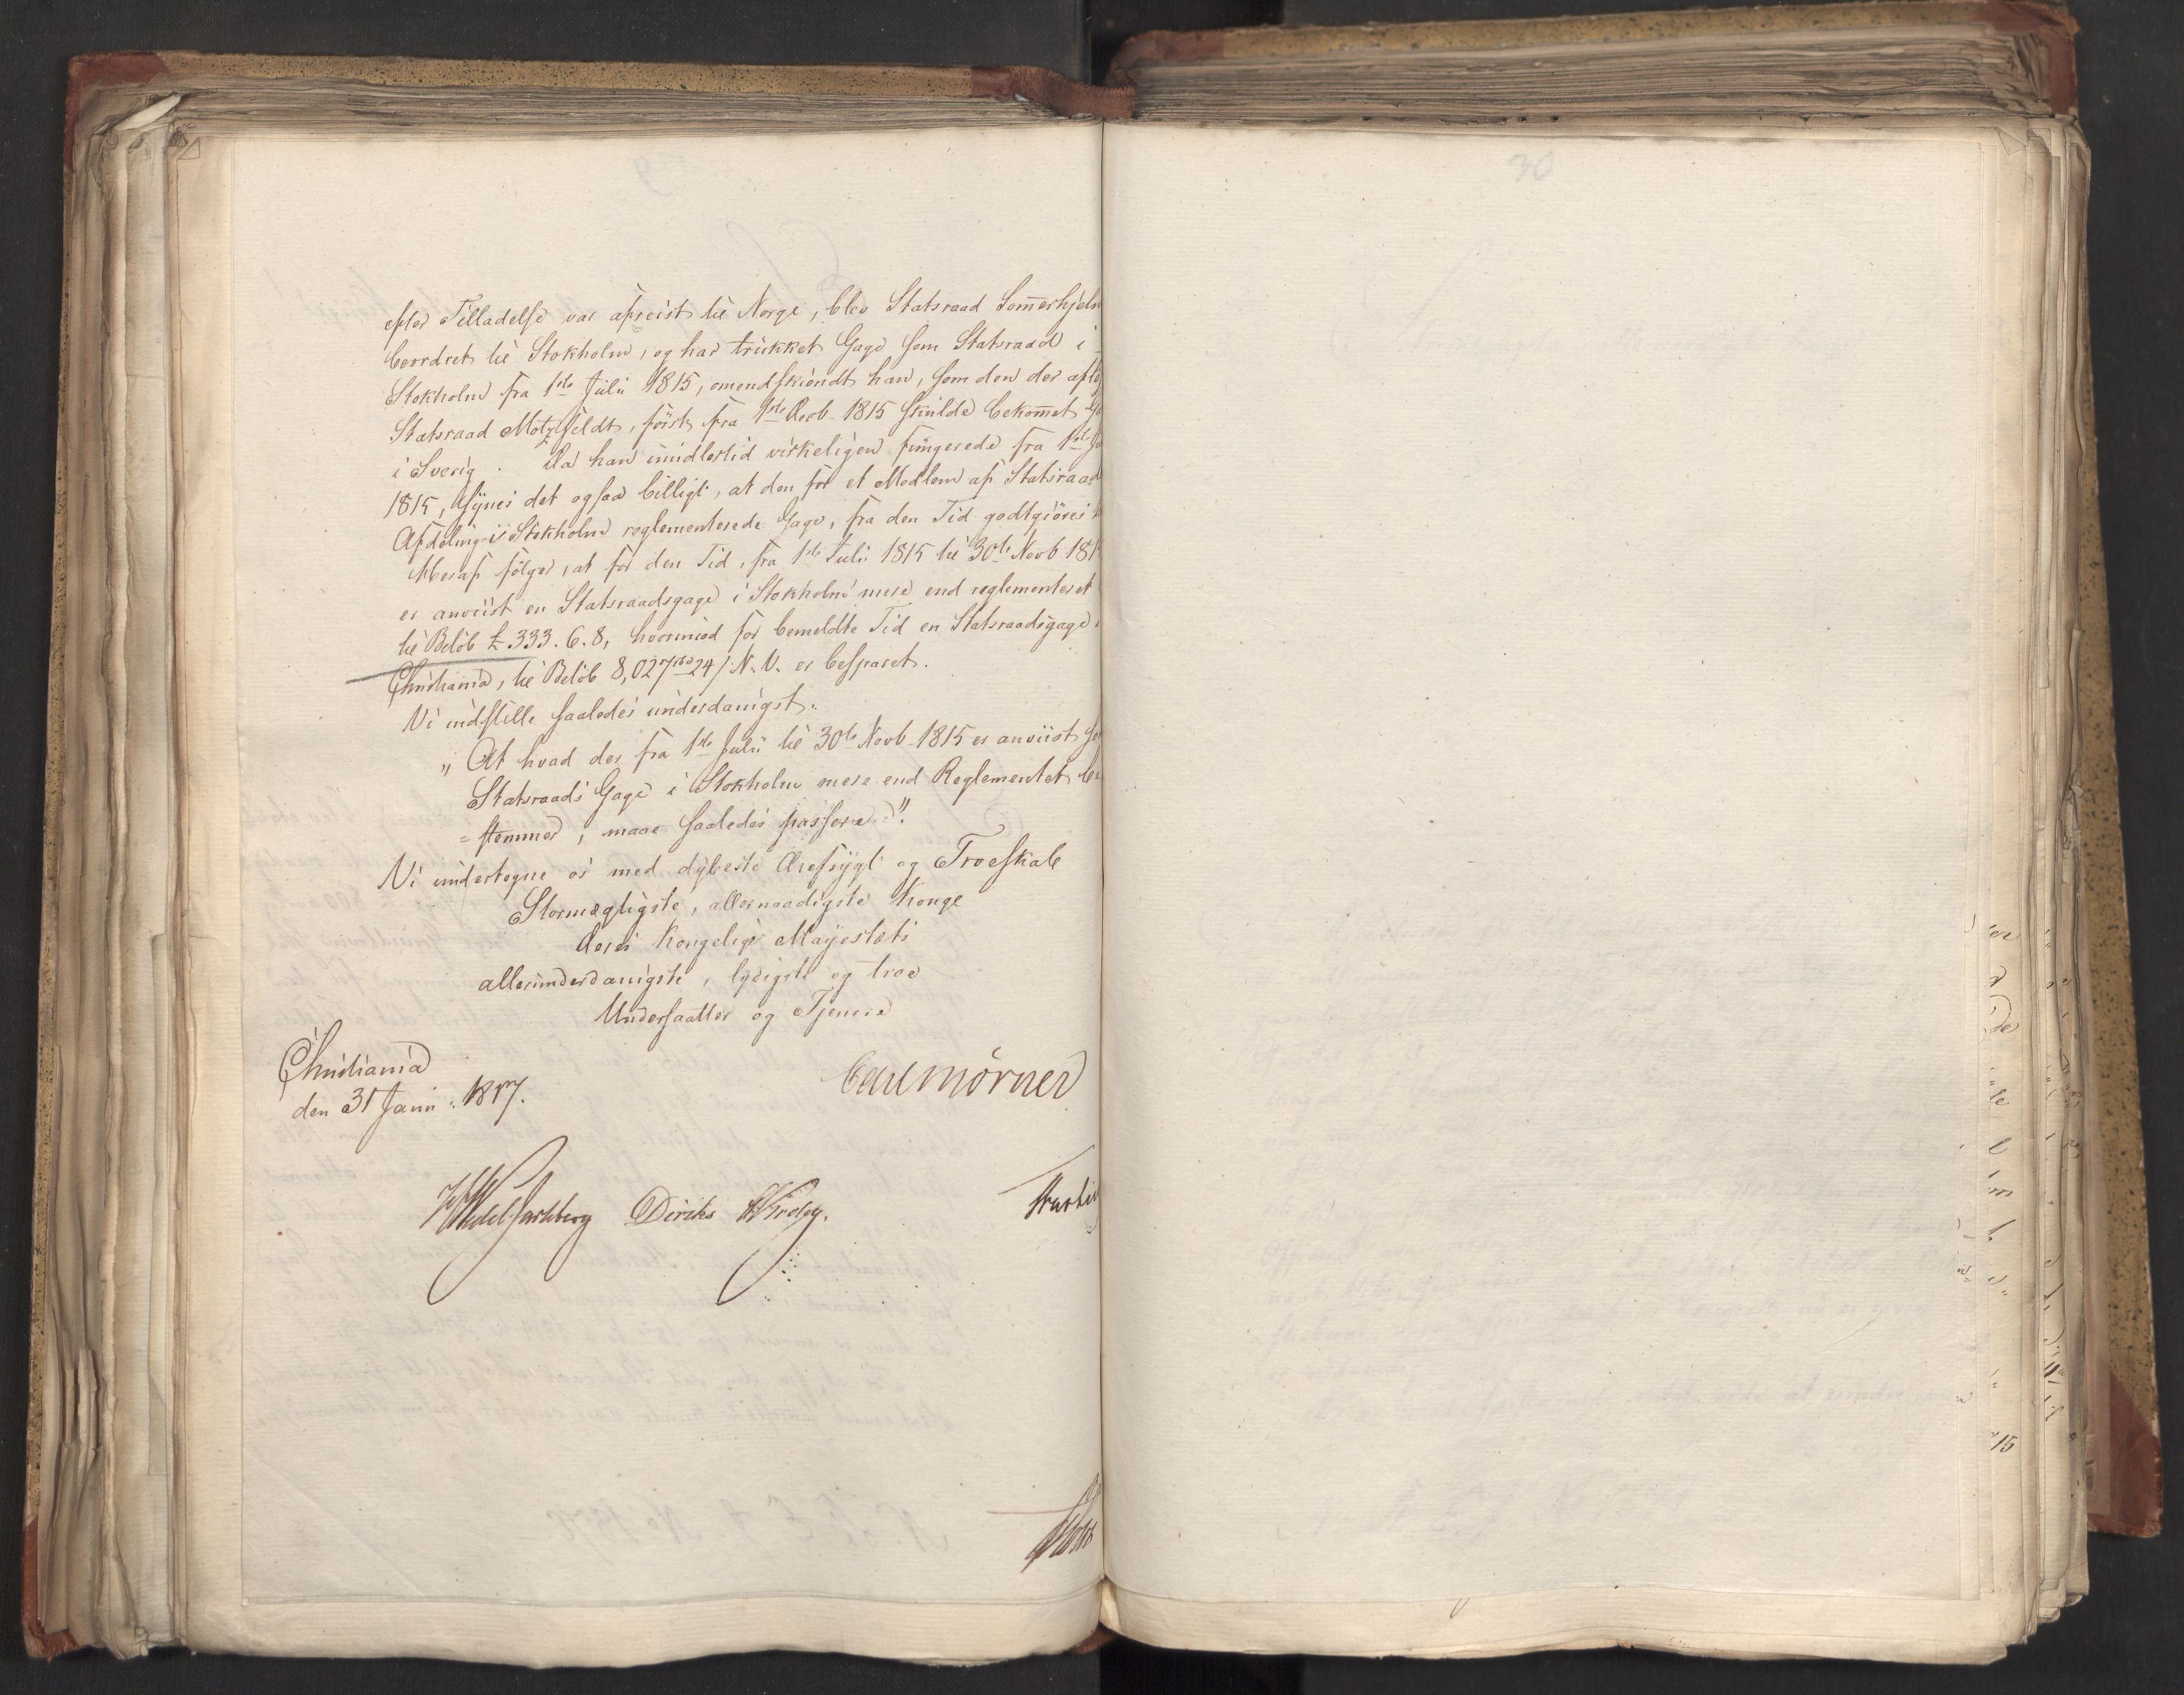 efter Tilladelse var afreist til Norge, blev Statsraad Som̄erhjelm
beordret til Stokholm, og har trukket Gage som Statsraad i
Stokholm fra 1ste Julii 1815, omendskiøndt han, som den der aflø
Statsraad Motzfeldt, først fra 1ste Decb. 1815 skulde bekom̄et Ga
i Sverig. Da han imidlertid virkeligen fungerede fra 1ste Ju
1815, synes det ogsaa billigt, at den for et Medlem af Statsraad
Afdeling i Stokholm reglementerede Gage, fra den Tid godtgiøres
Heraf følger, at for den Tid, fra 1ste Julii 1815 til 30te Novb 181
er anviist en Statsraadsgage i Stokholm mere end reglementeret
til Beløb £ 333. 6. 8, hvorimod for bemeldte Tid en Statsraadsgage i
Christiania, til Beløb 8,027 24 / N.V. er besparet.
Vi indstille saaledes underdanigst:
„At hvad der fra 1ste Julii til 30te Novb. 1815 er anviist
Statsraads Gage i Stokholm mere end Reglementet be
=stemmer, maae saaledes passere".
Vi undertegne os med dybeste Ærefrygt og Troeskab
Stormægtigste, allernaadigste Konge
Deres Kongelige Mayestæts
allerunderdanigste, lydigste og troe
Undersaatter og Tjenere
Christiania
den 31 Janu: 1817.
Carl Mörner
Wedel Jarlsberg Diriks Krohg.